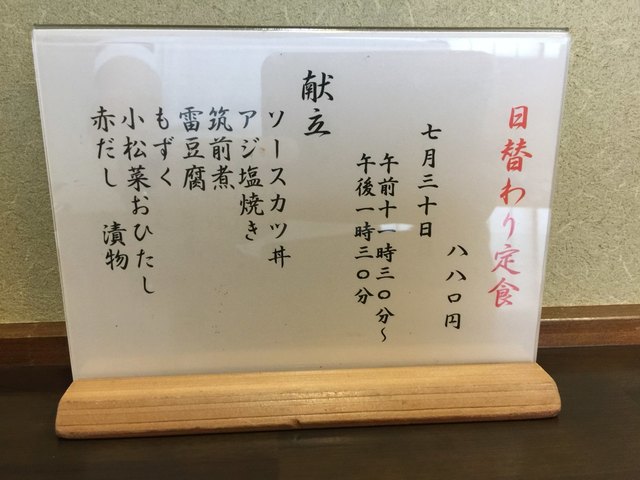 日替わり定食
八八〇円
七月三十日
午前十一時三〇分～
午後一時三〇分
献立
ソースカツ丼
アジ塩焼き
筑前煮
雷豆腐
もずく
小松菜おひたし
赤だし　漬物